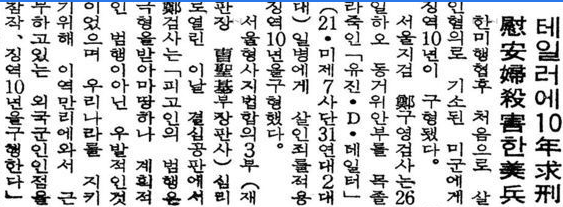 테일러에10年求刑
慰安婦殺害한美兵
한미행협후 처음으로 살
인혐의로 기소된 미군에게
징역10년이 구형됐다。
서울지검 鄭구영검사는26
일하오 동거위안부를 목졸
라죽인「유진·D·테일터」
(21·미제7사단31연대2대
대) 일병에게 살인죄를적용
징역10년을구형했다。
서울형사지법합의3부 (재
판장 曺聖基부장판사) 심리
로열린 이날 결심공판에서
鄭검사는「피고인의 범행은
극형을받아마땅하나 계획적
인 범행이아닌 우발적인것
이었으며 우리나라를 지키
기위해 이역만리에와서 근
무하고있는 외국군인인점을
참작、징역10년을구형한다」